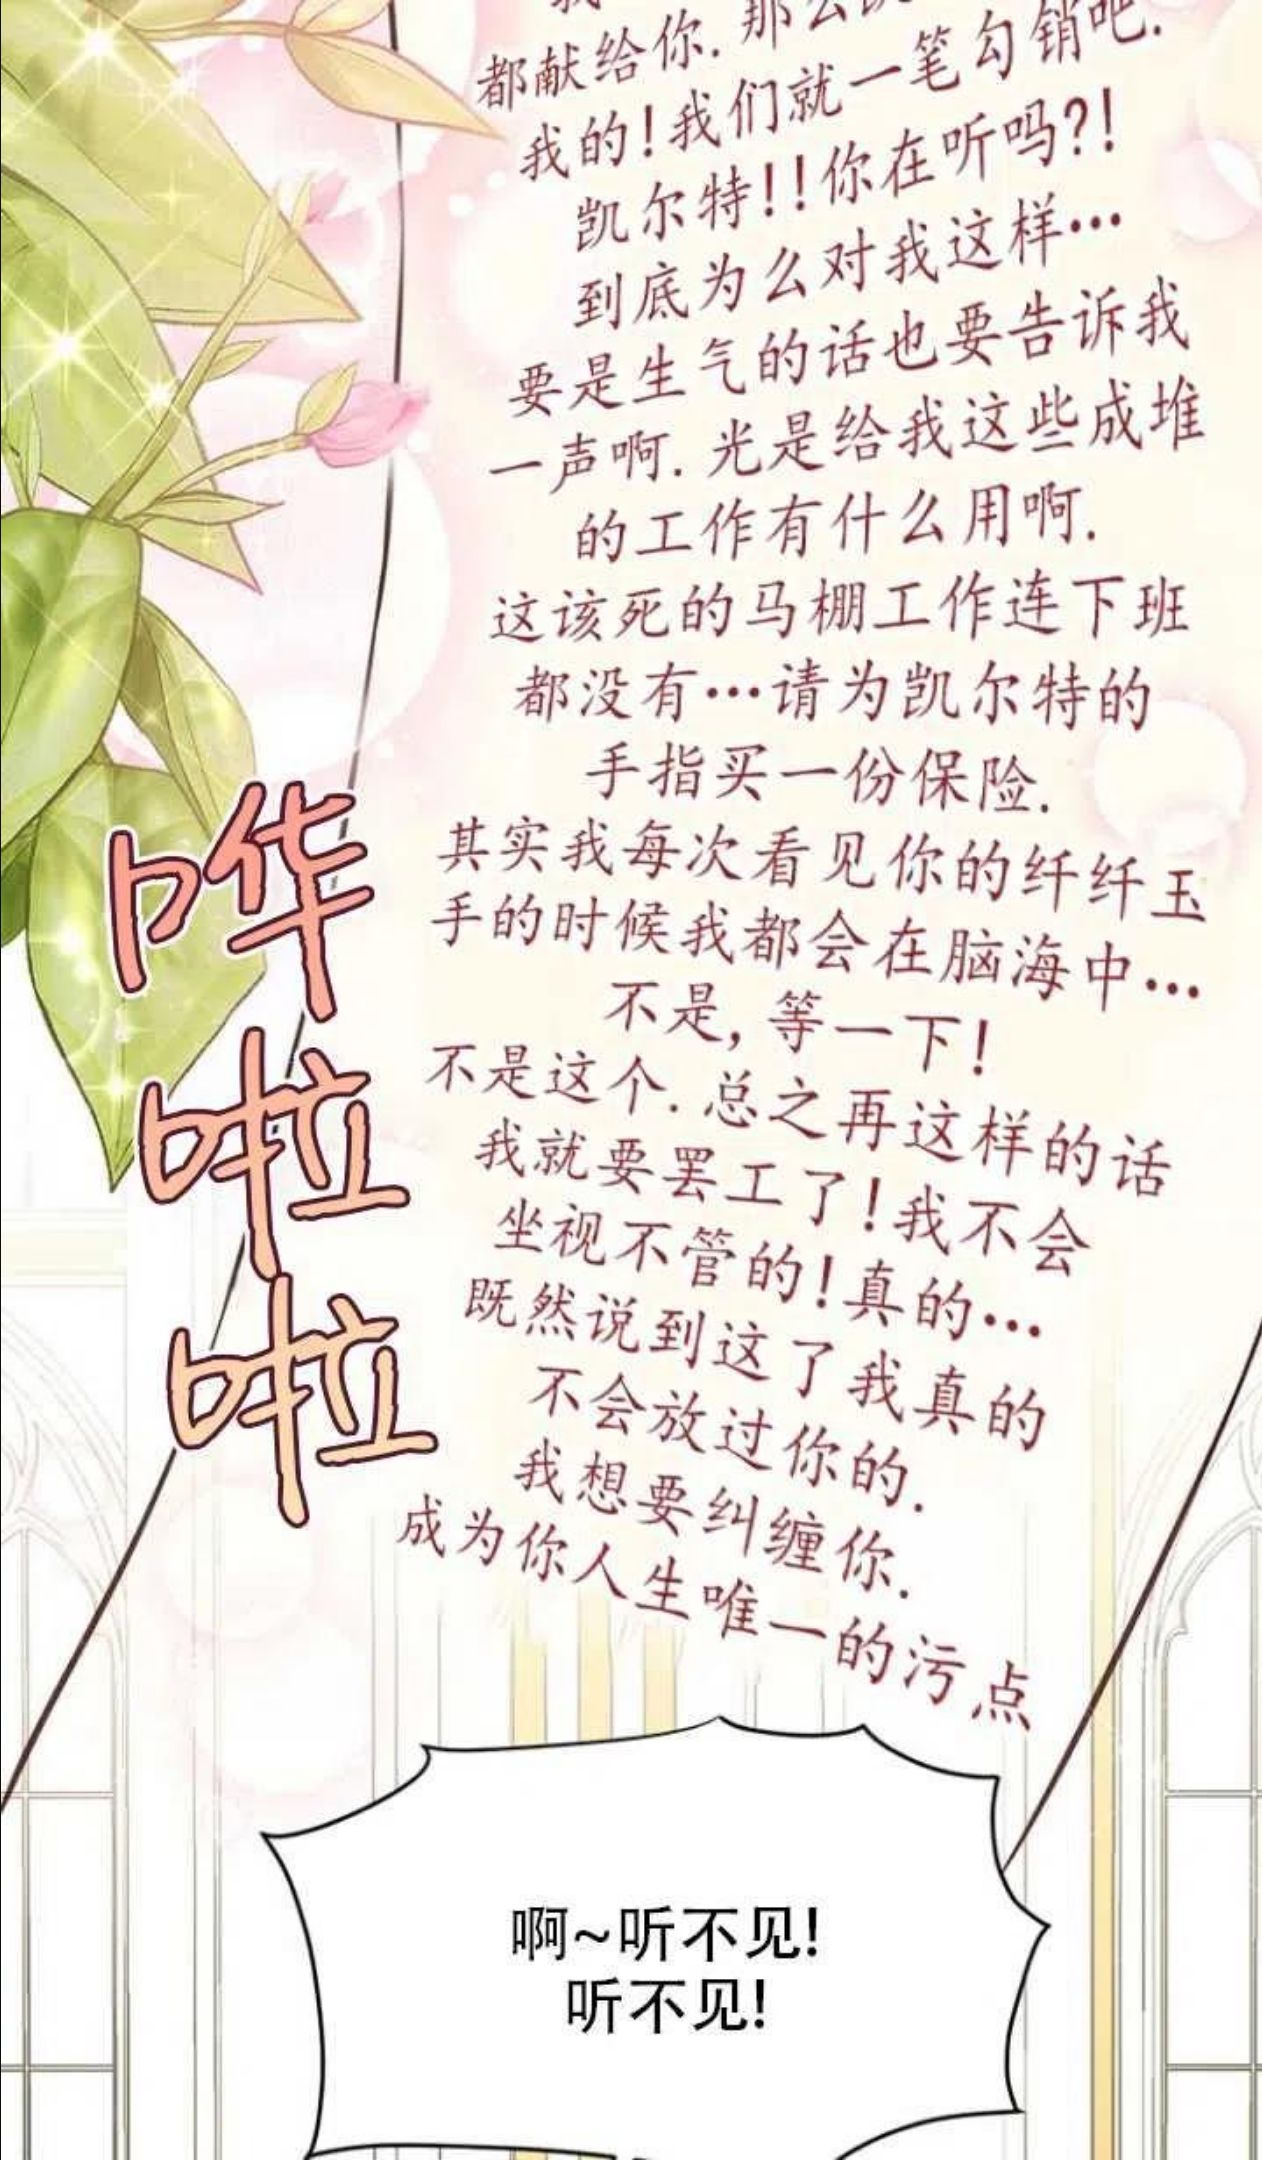 我
都献给你.那么
我的!我们就一笔勾销吧.
凯尔特!!你在听吗?!
到底为么对我这样…
要是生气的话也要告诉我
一声啊.光是给我这些成堆
的工作有什么用啊.
这该死的马棚工作连下班
都没有…请为凯尔特的
手指买一份保险.
其实我每次看见你的纤纤玉
手的时候我都会在脑海中…
不是,等一下!
不是这个.总之再这样的话
我就要罢工了!我不会
坐视不管的!真的…
既然说到这了我真的
不会放过你的.
我想要纠缠你.
成为你人生唯一的污点
哗
啦
啦
啊~听不见!
听不见!